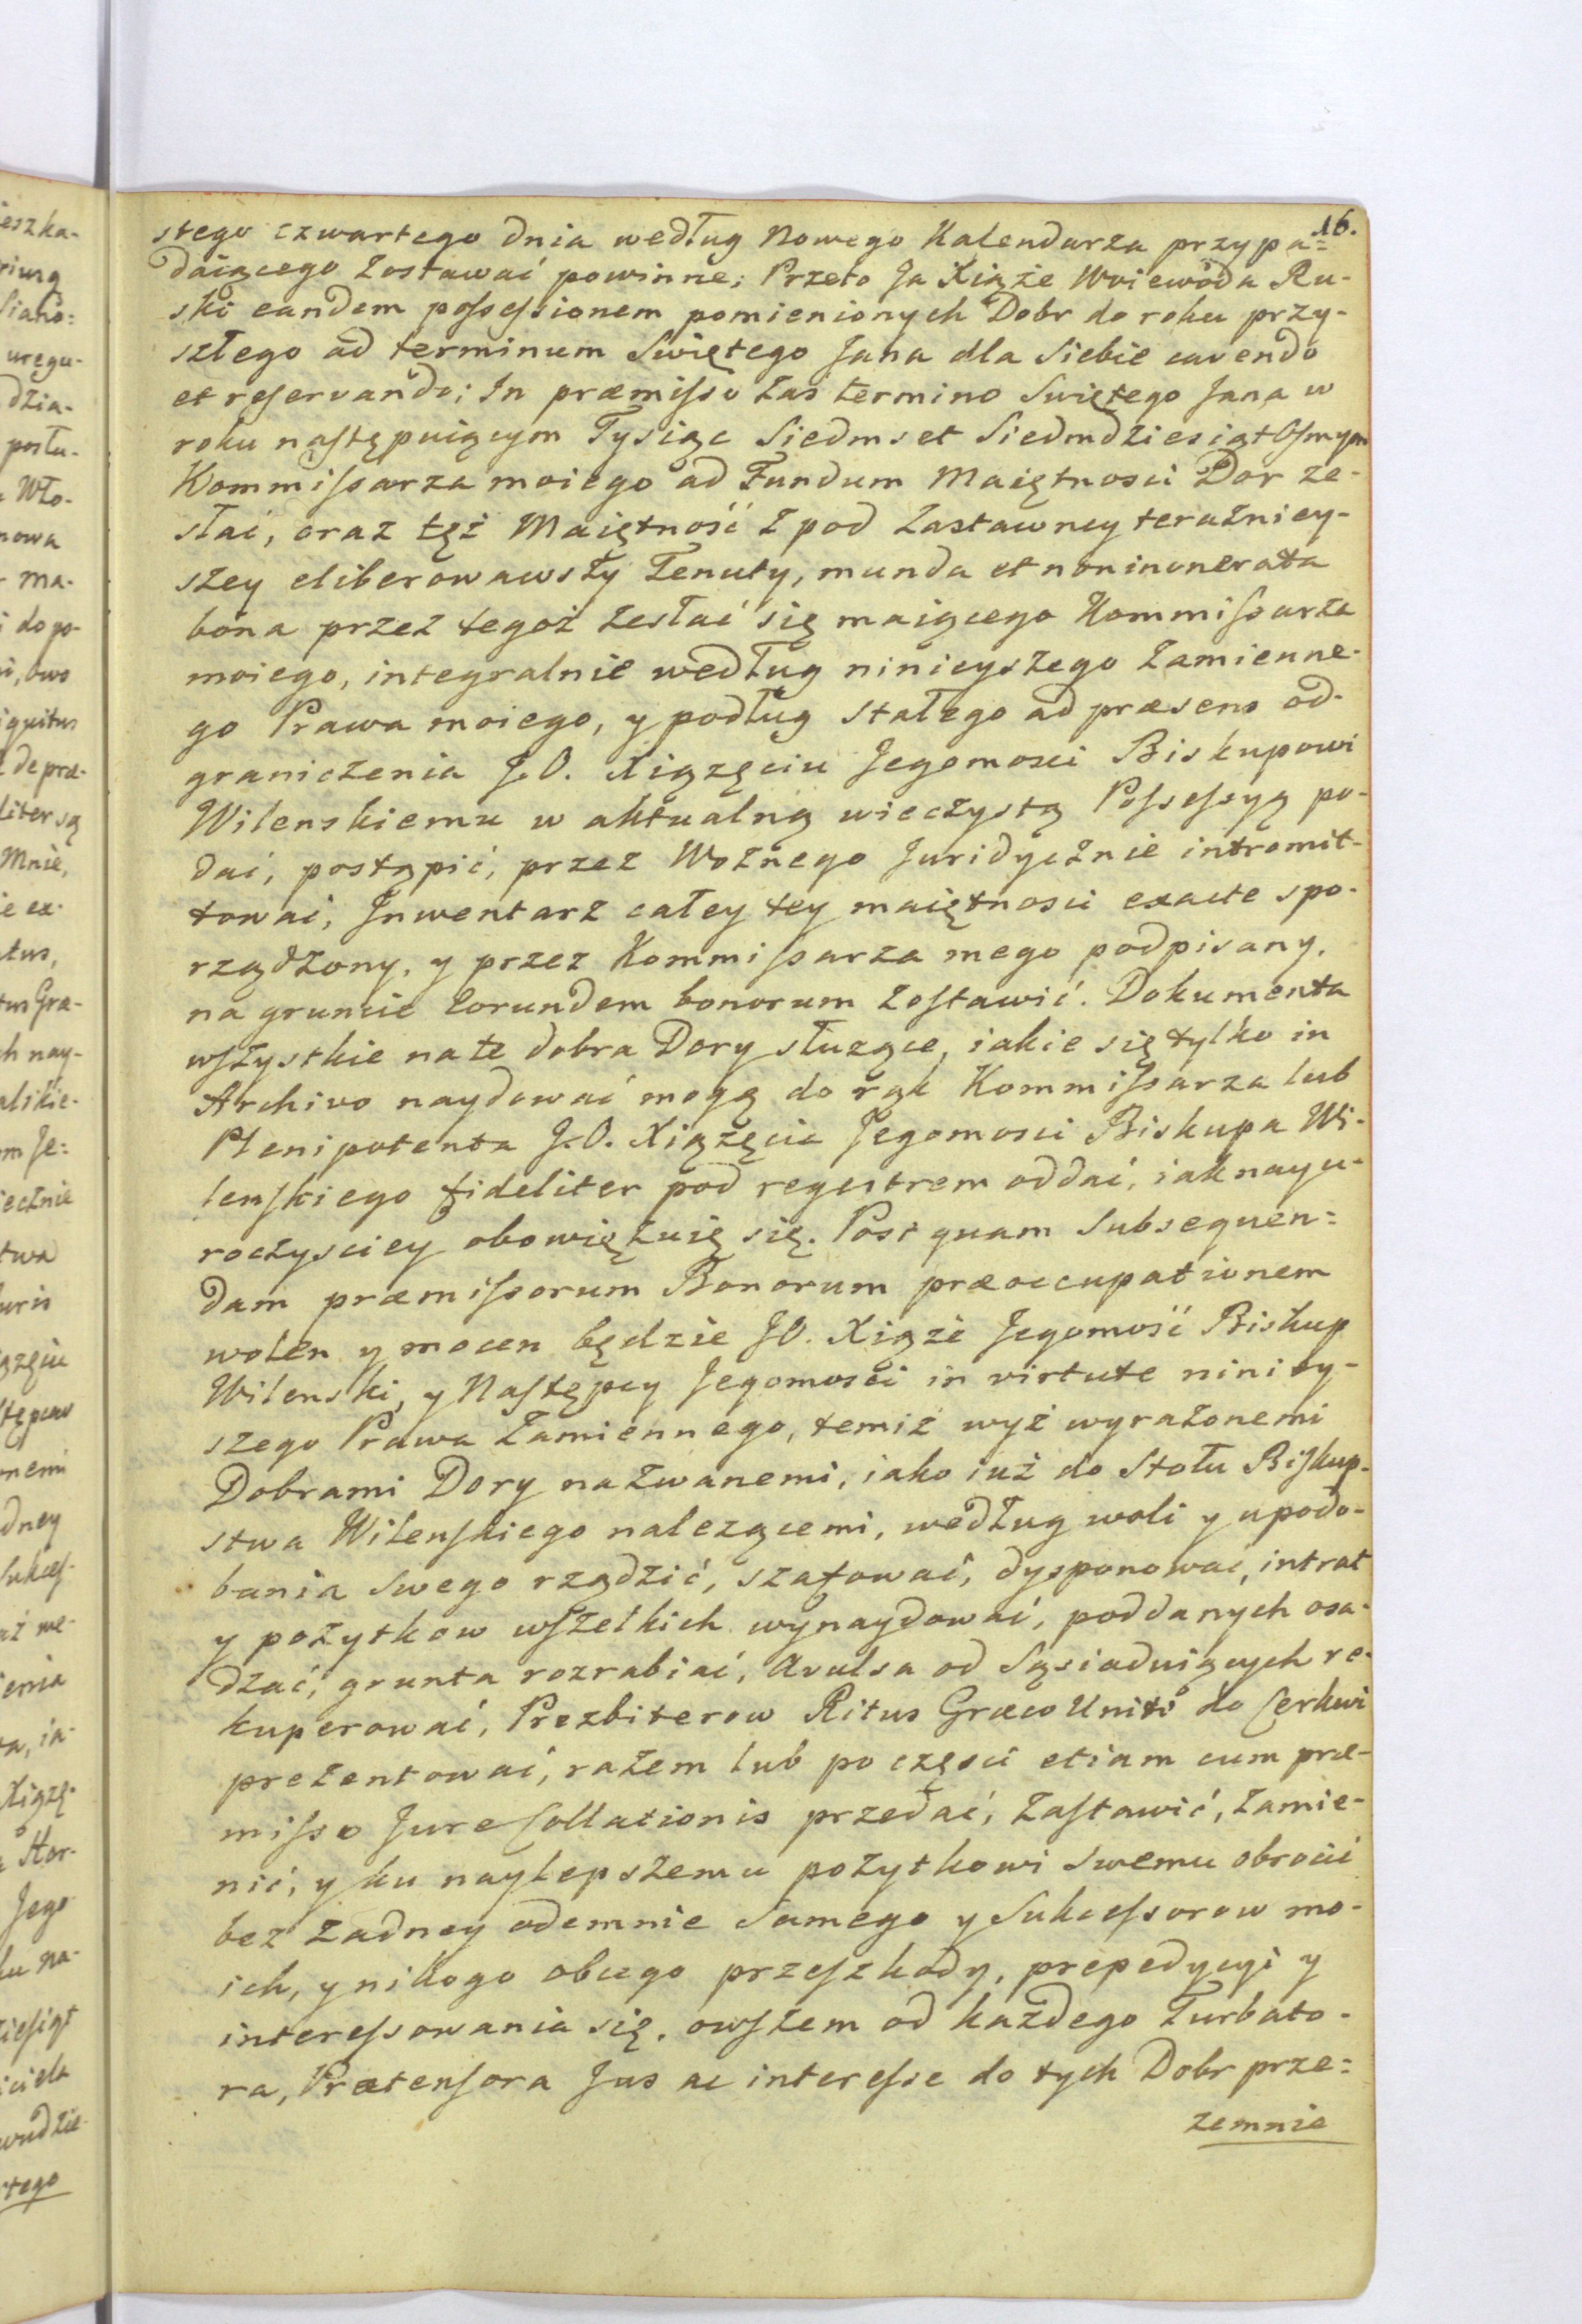 16.
stego czwartego dnia według Nowego Kalendarza przypa=
daiącego zostawać powinne; Przeto Ja Xiąże Woiewoda Ru-
ski eandem possessionem pomienionych Dobr do roku przy-
szłego ad terminum Swiętego Jana dla Siebie cavendo
et reservando; In præmisso zas termino Swiętego Jana w
roku następuiącym Tysiąc Siedmset Siedmdziesiąt Osmym
Kommissarza moiego ad Fundum Maiętnosci Dor ze-
słać, oraz tęż Maiętność z pod Zastawney teraźniey-
szey eliberowawszy Tenuty, munda et noninonerata
bona przez tegoż zesłać się maiącego Kommissarza
moiego, integralnie według ninieyszego Zamienne-
go Prawa moiego, y podług stałego ad præsens od-
graniczenia J.O. Xiążęciu Jegomosci Biskupowi
Wilenskiemu w aktualną wieczystą Possessyą po-
dać, postąpić, przez Woźnego Juridycznie intromit-
tować, Inwentarz całey tey maiętnosci exacte spo-
rządzony, y przez Kommissarza mego podpisany,
na gruncie Eorundem bonorum zostawić. Dokumenta
wszystkie na te dobra Dory służące, iakie się tylko in
Archivo naydować mogą do rąk Kommissarza lub
Plenipotenta J.O. Xiążęcia Jegomosci Biskupa Wi-
lenskiego fideliter pod regestrem oddać, iak nayu-
roczysciey obowięzuię się. Post quam subsequen=
dam præmissorum Bonorum præoccupationem
wolen y mocen będzie JO. Xiąże Jegomość Biskup
Wilenski, y Następcy Jegomości in virtute niniey-
szego Prawa Zamiennego, temiż wyż wyrażonemi
Dobrami Dory nazwanemi, iako iuż do Stołu Biskup-
stwa Wilenskiego należącemi, według woli y upodo-
bania Swego rządzić, szafować, dysponować, intrat
y pożytkow wszelkich wynaydować, poddanych osa-
dzać, grunta rozrabiać, Avulsa od Sąsiaduiących re-
kuperować, Prezbiterow Ritus Græco Uniti do Cerkwi
prezentować, razem lub po częsci etiam cum præ-
misso Jure Collationis przedać, Zastawić, Zamie-
nić, y ku naylepszemu pożytkowi Swemu obrocić
bez żadney odemnie Samego y Sukcessorow mo-
ich, y nikogo obcego przeszkody, prepedycyi y
interessowania się, owszem od każdego Turbato-
ra, Prætensora Jus ac interesse do tych Dobr prze=
zemnie